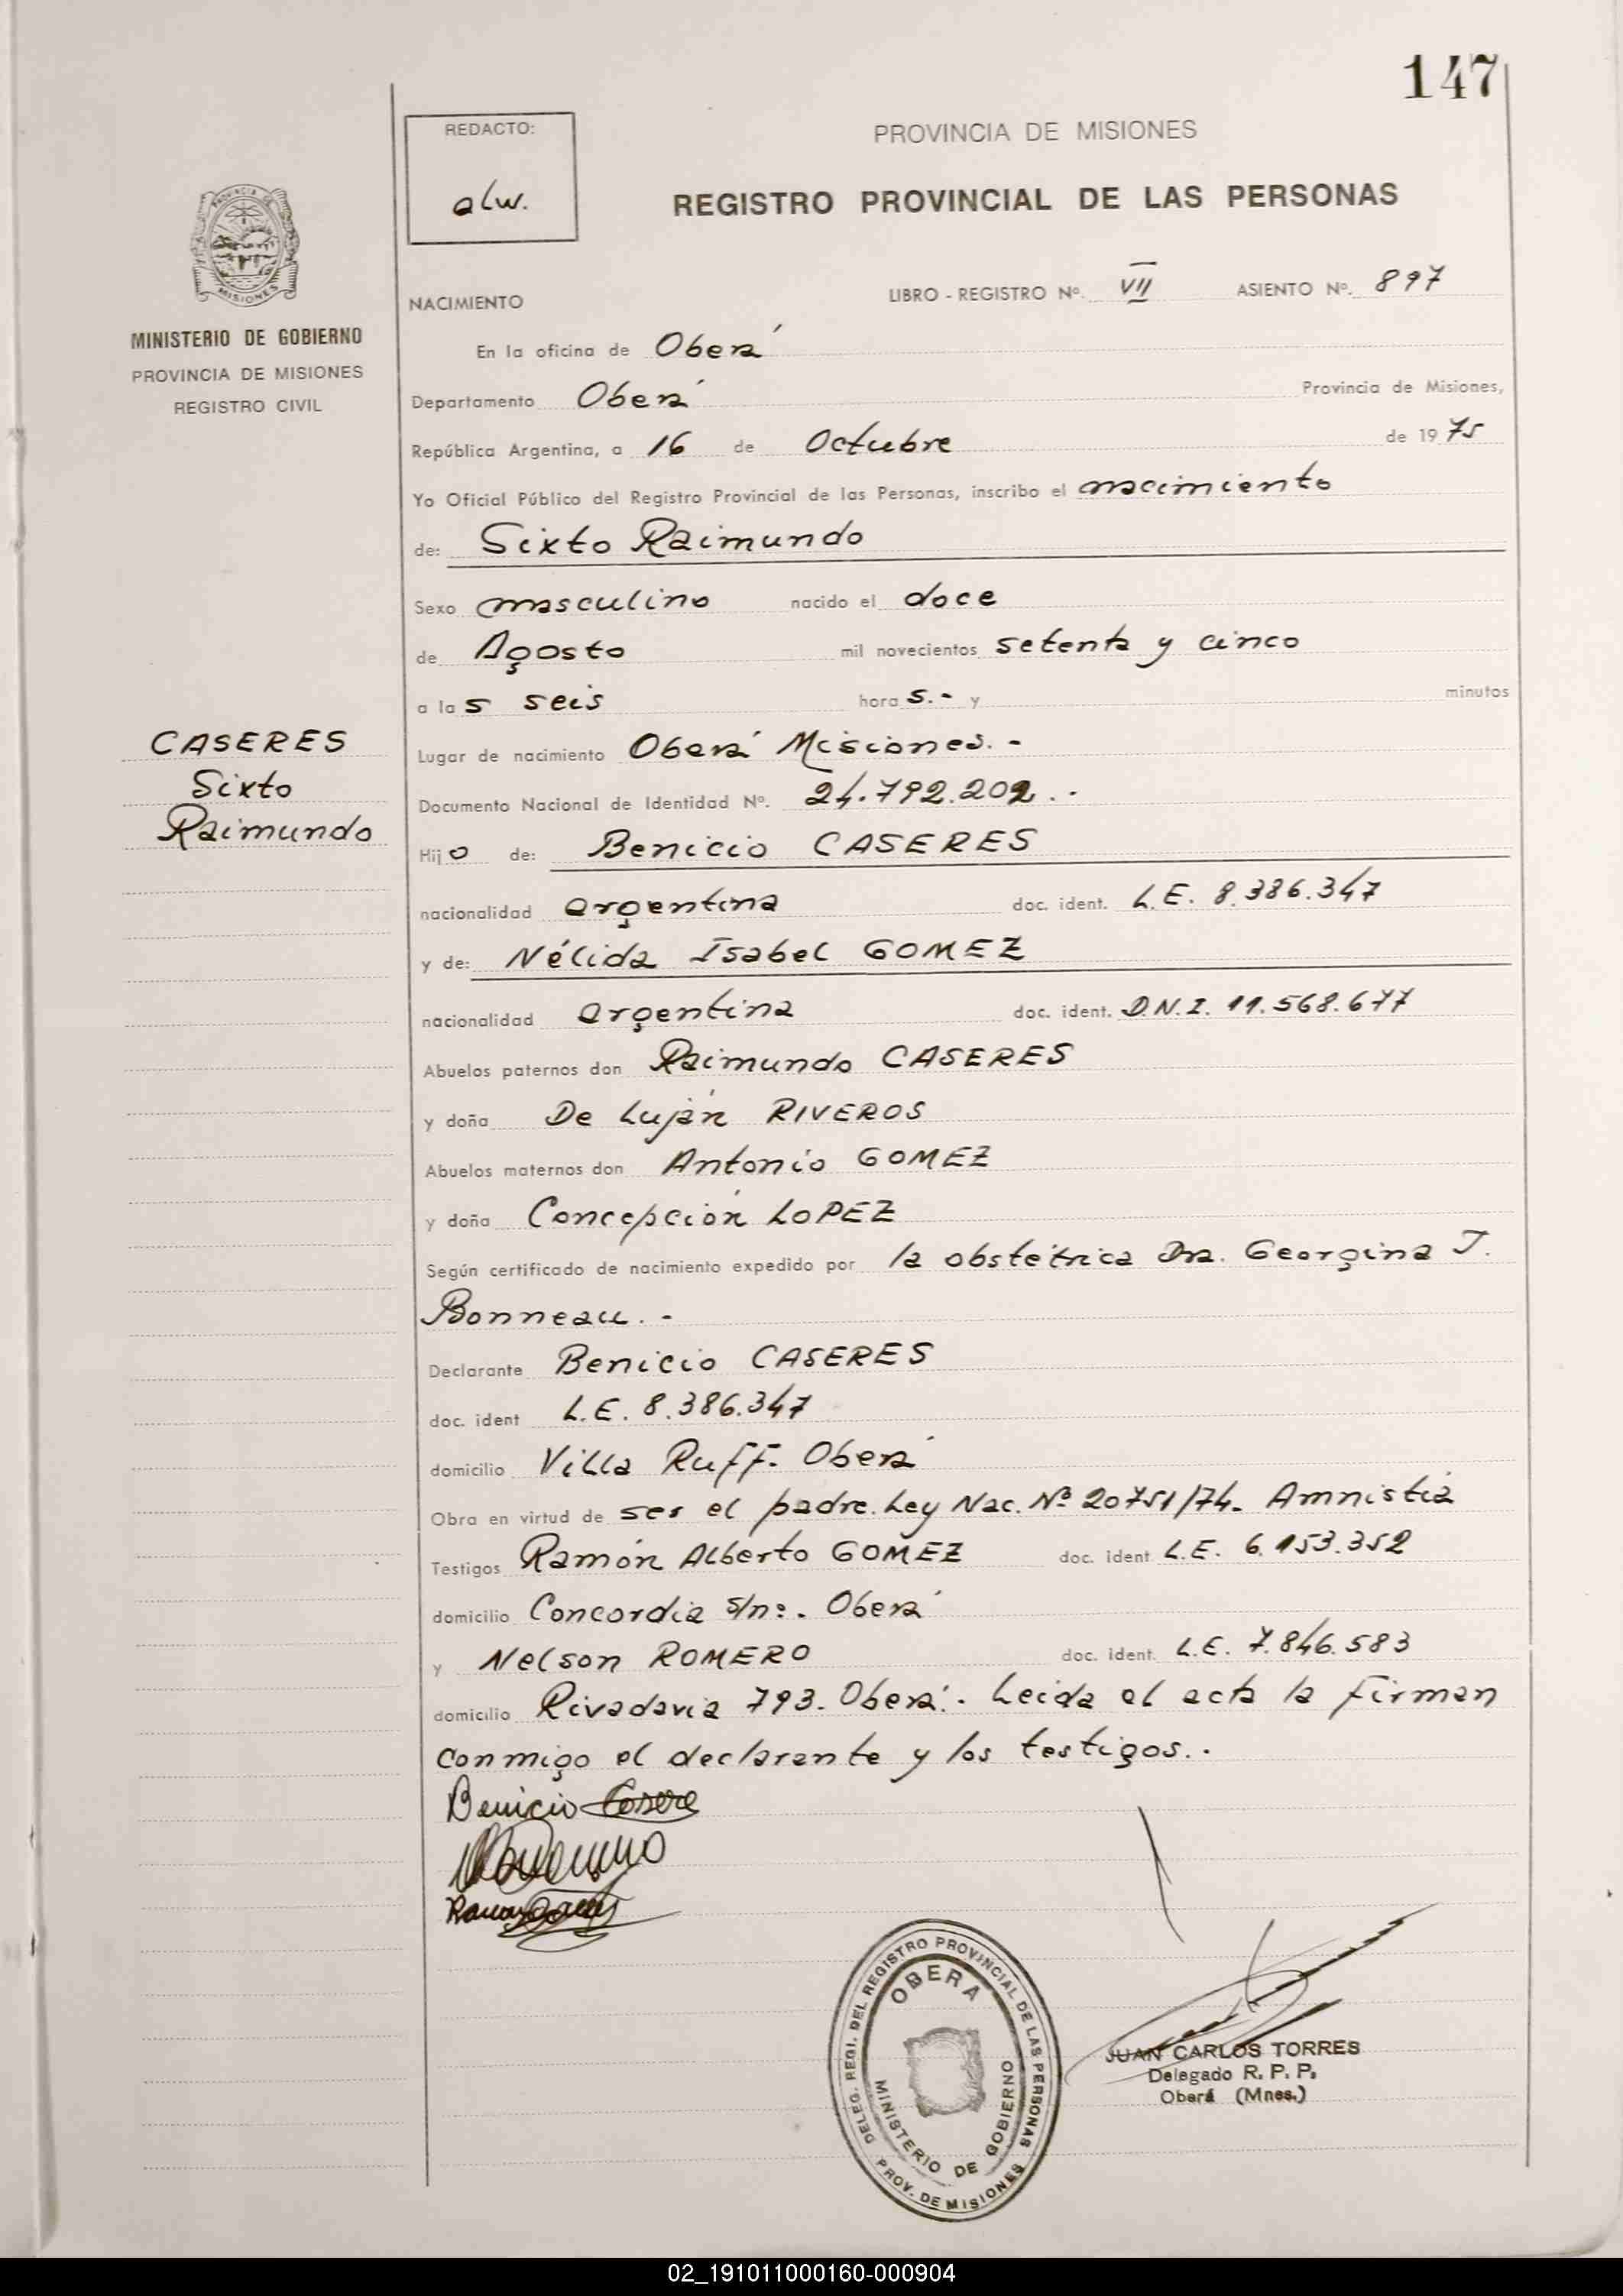 147
REDACTO:
alw.
PROVINCIA DE MISIONES
REGISTRO PROVINCIAL DE LAS PERSONAS
PROVINCIA DE
MISIONES
MINISTERIO DE GOBIERNO
PROVINCIA DE MISIONES
REGISTRO CIVIL
NACIMIENTO
LIBRO - REGISTRO Nº. VII ASIENTO Nº. 897
En la oficina de Oberá
Departamento Oberá Provincia de Misiones,
República Argentina, a 16 de Octubre de 1975
Yo Oficial Público del Registro Provincial de las Personas, inscribo el nacimiento
de: Sixto Raimundo
Sexo masculino nacido el doce
de Agosto mil novecientos setenta y cinco
a las seis horas.- y minutos
CASERES
Sixto
Raimundo
Lugar de nacimiento Oberá Misiones.-
Documento Nacional de Identidad Nº. 24.792.202.-
Hijo de: Benicio CASERES
nacionalidad argentina doc. ident. L.E. 8.386.347
y de: Nélida Isabel GOMEZ
nacionalidad argentina doc. ident. D.N.I. 11.568.677
Abuelos paternos don Raimundo CASERES
y doña De Luján RIVEROS
Abuelos maternos don Antonio GOMEZ
y doña Concepción LOPEZ
Según certificado de nacimiento expedido por la obstétrica Dra. Georgina J.
Bonneau.-
Declarante Benicio CASERES
doc. ident L.E. 8.386.347
domicilio Villa Ruff. Oberá
Obra en virtud de ser el padre. Ley Nac. Nº 20751/74. Amnistía
Testigos Ramón Alberto GOMEZ doc. ident L.E. 6.153.352
domicilio Concordia s/nº. Oberá
y Nelson ROMERO doc. ident. L.E. 7.846.583
domicilio Rivadavia 793. Oberá. Leida el acta la firman
conmigo el declarante y los testigos..
Benicio Casere
DELEG. REGI. DEL REGISTRO PROVINCIAL DE LAS PERSONAS
OBERA
MINISTERIO DE GOBIERNO
PROV. DE MISIONES
JUAN CARLOS TORRES
Delegado R. P. P.
Oberá (Mnes.)
02_191011000160-000904